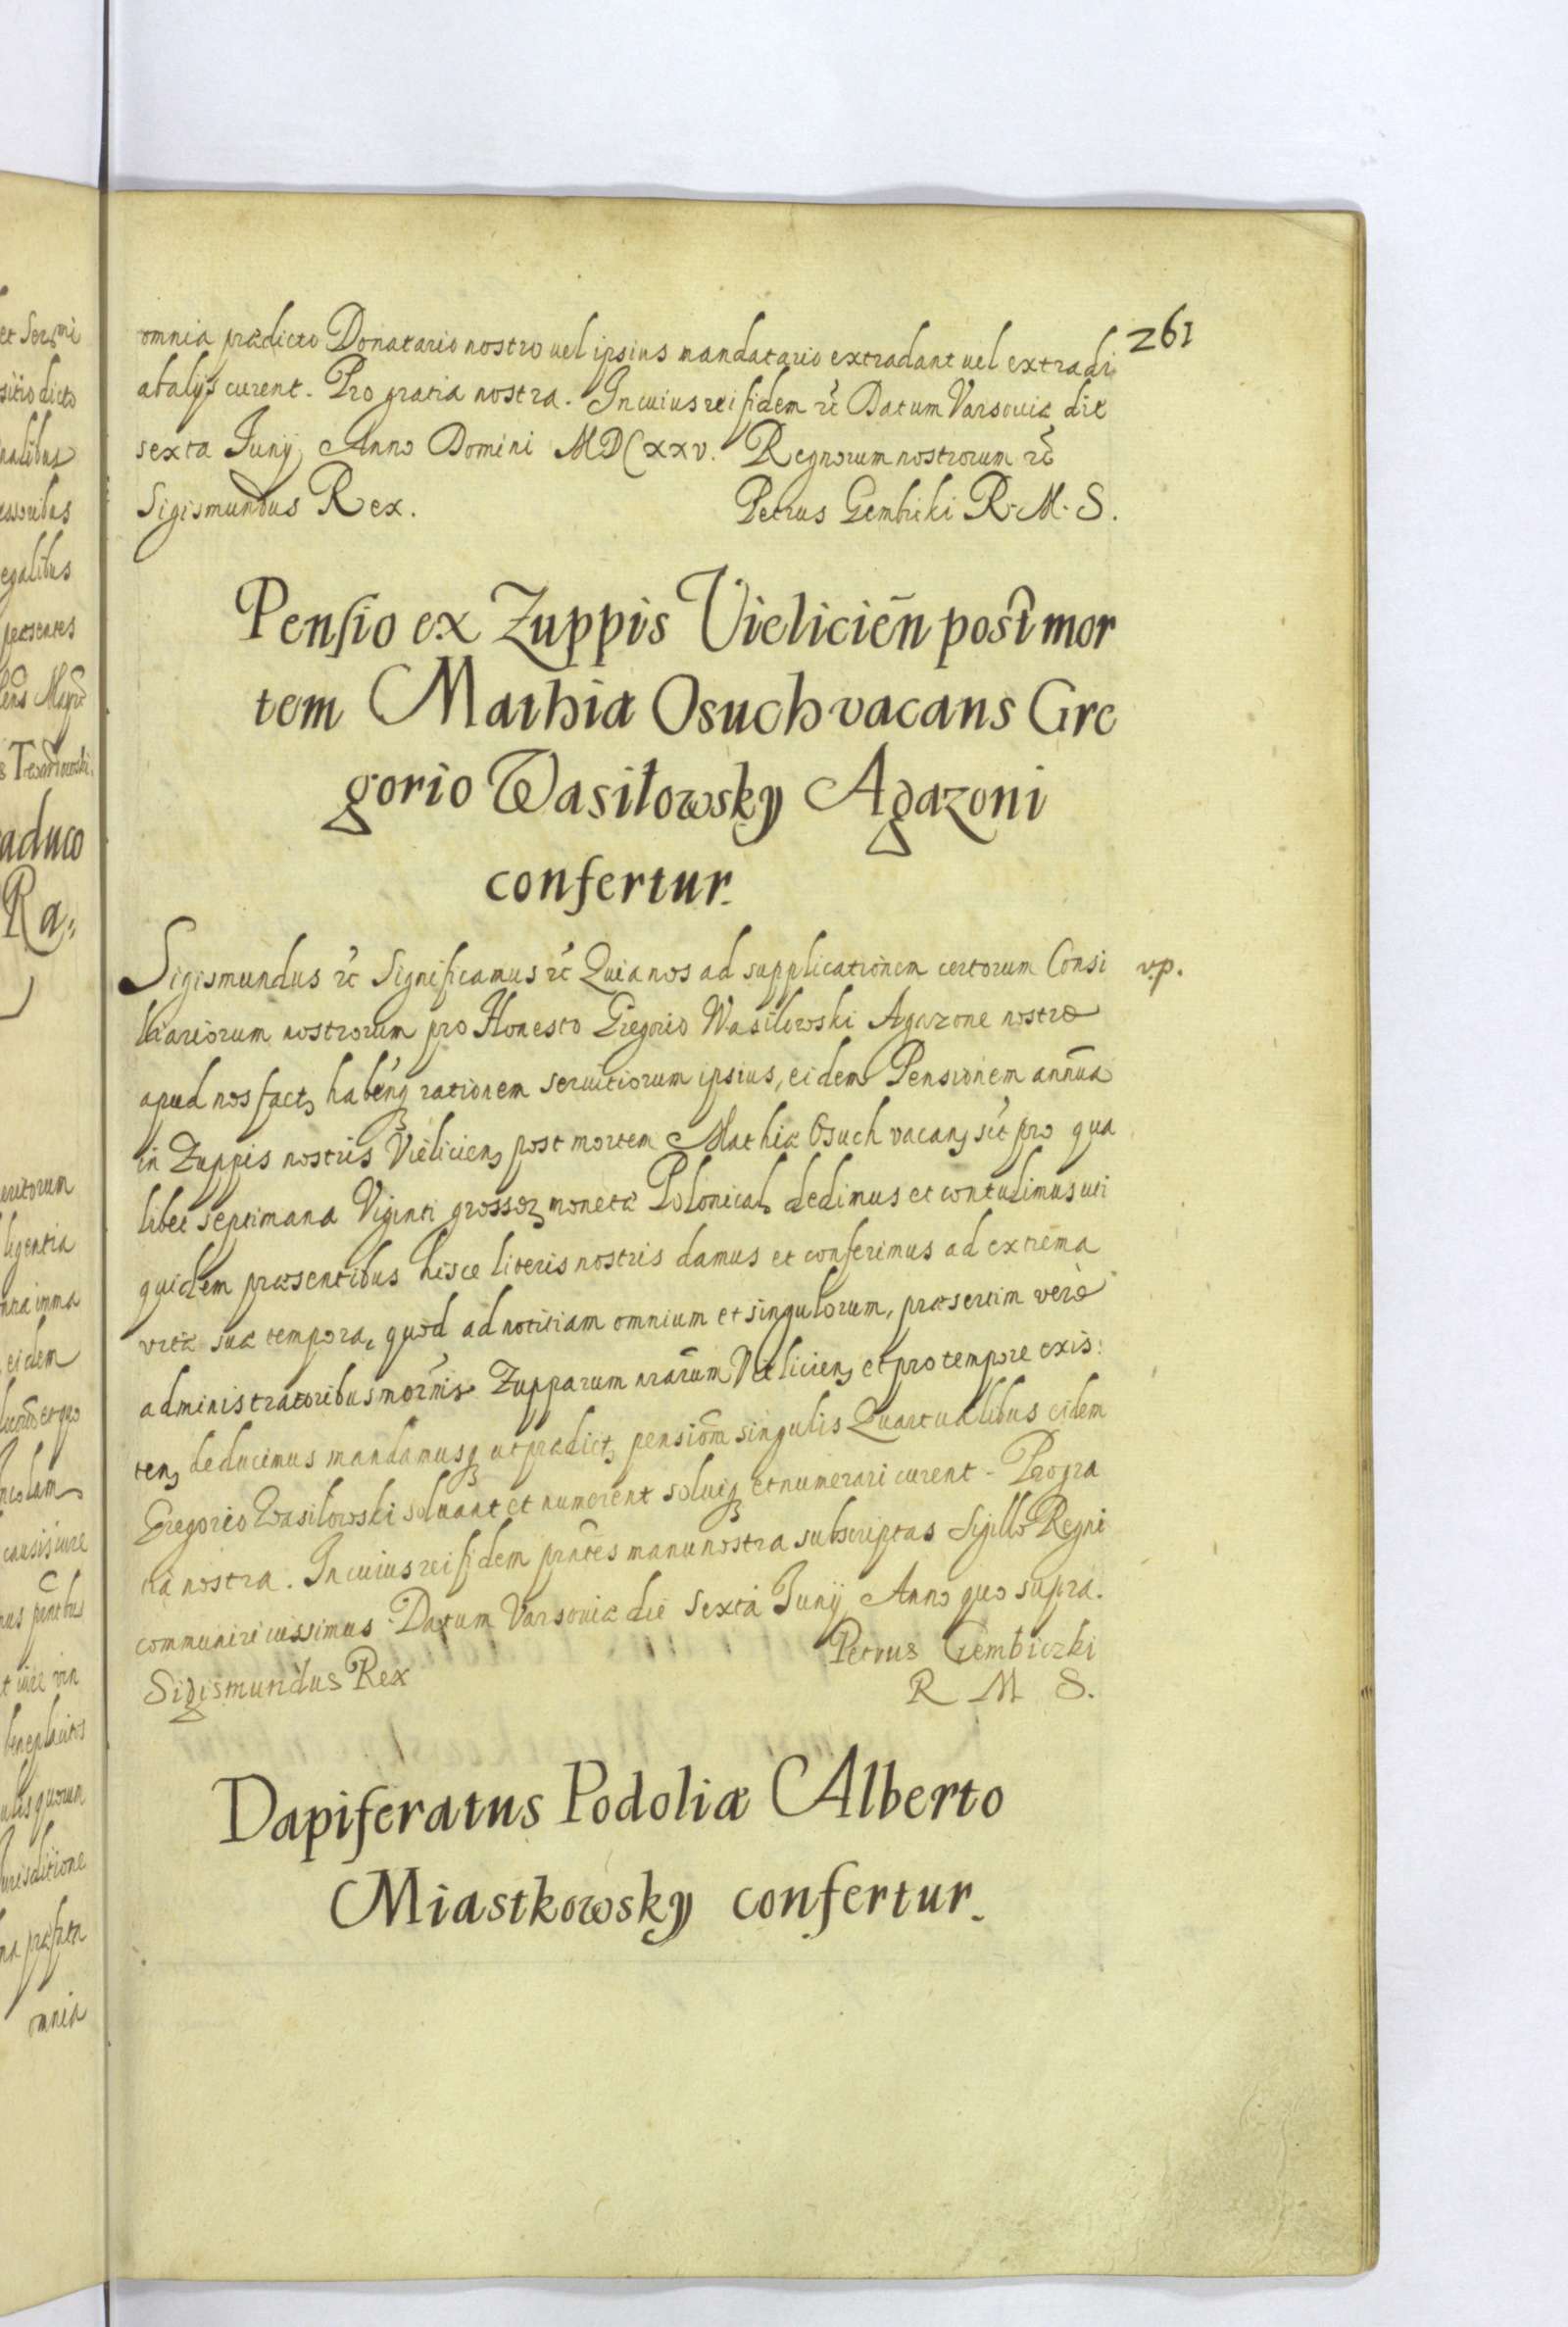 261
omnia prædicto Donatario nostro uel ipsius mandatario extradant uel extradi
ab alijs curent. Pro gratia nostra. In cuius rei fidem rc̃ Datum Varsouiæ die
sexta Junij Anno Domini MDCxxv. Regnorum nostrorum rc̃
Sigismundus Rex. Petrus Gembiki R. M. S.
Pensio ex Zuppis Vielicien̄ post mor
tem Mathiæ Osuch vacans Gre
gorio Wasilowsky Agazoni
confertur.
Sigismundus rc̃ Significamus rc̃ Quia nos ad supplicationem certorum Consi
v.p.
liariorum nostrorum pro Honesto Gregorio Wasilowski Agazone nostro
apud nos fact, haben̄q rationem seruitiorum ipsius, eidem Pensionem annuā
in Zuppis nostris Vieliciens post mortem Mathiæ Osuch vacan, sc̃t pro qua
libet septimana Viginti grossoꝝ monetæ Polonical, dedimus et contulimus uti
quidem præsentibus hisce literis nostris damus et conferimus ad extrema
vitæ suæ tempora, quod ad notitiam omnium et singulorum, præsertim verò
administratoribus mod̄rnis Zupparum nrārum Vieliciens et pro tempore exis:
ten, deducimus mandamusq ut prædict, pensiōm singulis Quartualibus eidem
Gregorio Wasilowski soluant et numerent soluiq et numerari curent. Pro gra
tiā nostra. In cuius rei fidem prn̄tes manu nostra subscriptas Sigillo Regni
communiri iussimus. Datum Varsouiæ die Sexta Junij Anno quo supra.
Petrus Gembiczki
Sigismundus Rex R M S.
Dapiferatus Podoliæ Alberto
Miastkowsky confertur.